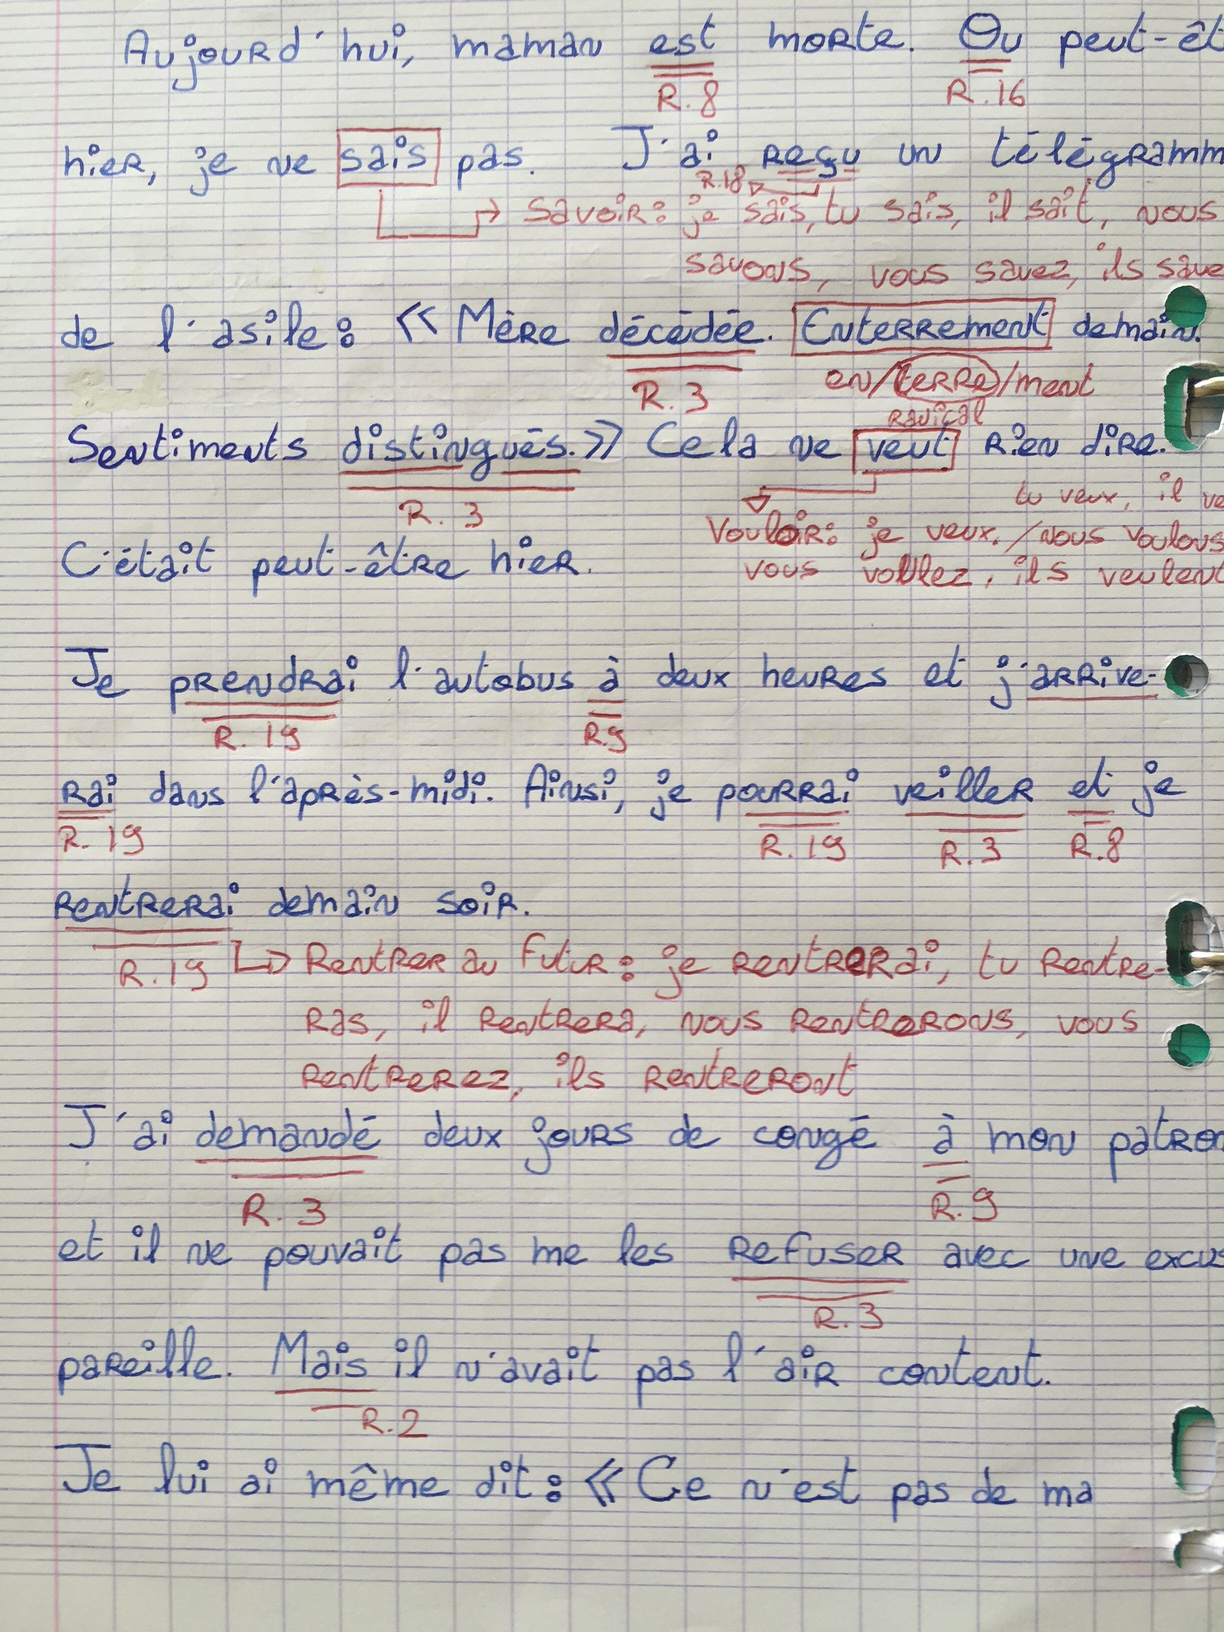 Aujourd'hui, maman est morte. Ou peut-êt
R.8 R.16
hier, je ne sais pas. J'ai reçu un télégramm
R.18
Savoir: je sais, tu sais, il sait, nous
savons, vous savez, ils save
de l'asile: « Mère décédée. Enterrement demain.
R.3 en/terre/ment
radical
Sentiments distingués.» Cela ne veut rien dire.
R.3 tu veux, il ve
Vouloir: je veux. /nous voulons
C'était peut-être hier. vous voulez, ils veulent
Je prendrai l'autobus à deux heures et j'arrive-
R.19 R.9
rai dans l'après-midi. Ainsi, je pourrai veiller et je
R.19 R.19 R.3 R.8
rentrerai demain soir.
R.19 Rentrer au futur: je rentrerai, tu rentre-
ras, il rentrera, nous rentrerons, vous
rentrerez, ils rentreront
J'ai demandé deux jours de congé à mon patro
R.3 R.9
et il ne pouvait pas me les refuser avec une excus
R.3
pareille. Mais il n'avait pas l'air content.
R.2
Je lui ai même dit: « Ce n'est pas de ma